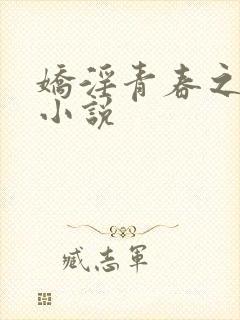 嬌淫青春之
小說
臧志軍